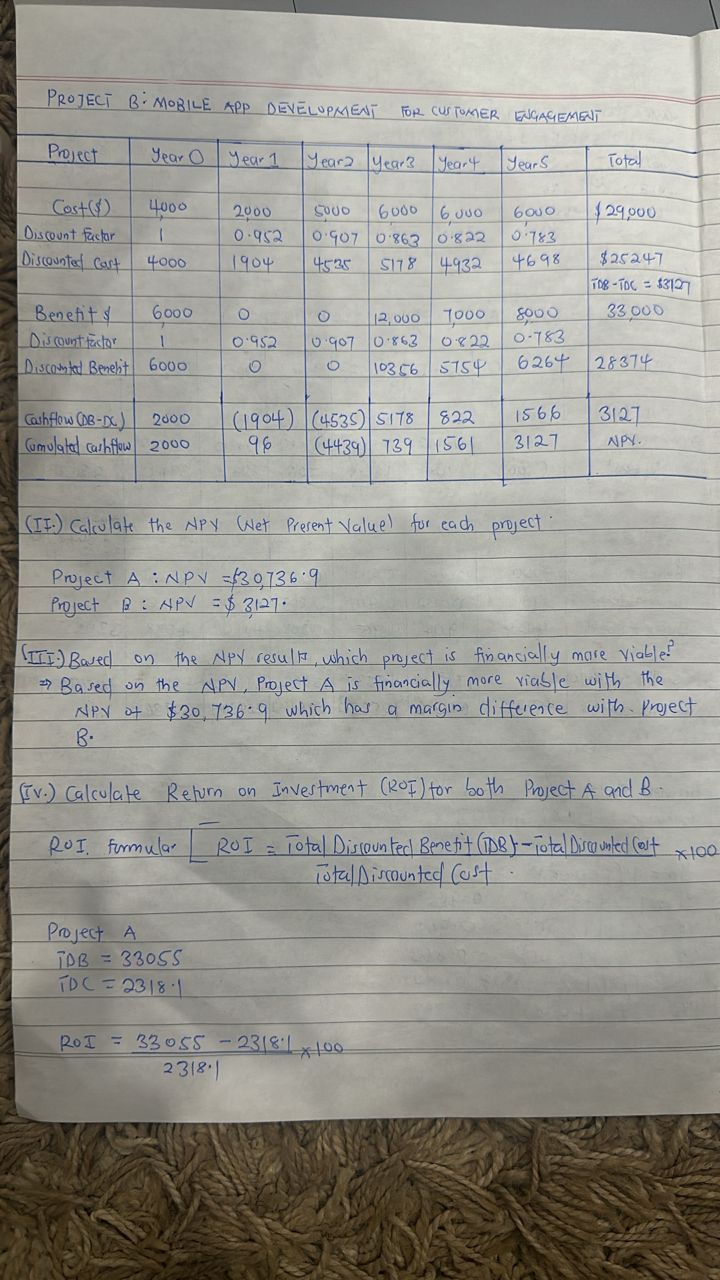 PROJECT B: MOBILE APP DEVELOPMENT FOR CUSTOMER ENGAGEMENT
Project Year 0 Year 1 Year 2 Year 3 Year 4 Year 5 Total
Cost ($) 4,000 2000 5000 6000 6,000 6000 $29,000
Discount Factor 1 0.952 0.907 0.863 0.822 0.783
Discounted Cost 4000 1904 4535 5178 4932 4698 $25247
TDB-TDC = $3127
Benefit $ 6000 0 0 12,000 7,000 8000 33,000
Discount factor 1 0.952 0.907 0.863 0.822 0.783
Discounted Benefit 6000 0 0 10356 5754 6264 28374
Cashflow (DB-DC) 2000 (1904) (4535) 5178 822 1566 3127
Comulated cashflow 2000 96 (4439) 739 1561 3127 NPV.
(II.) Calculate the NPV (Net Present Value) for each project.
Project A : NPV = $30,736.9
Project B : NPV = $ 3,127.
(III.) Based on the NPV results, which project is financially more viable?
⇒ Based on the NPV, Project A is financially more viable with the
NPV of $30,736.9 which has a margin difference with Project
B.
(IV.) Calculate Return on Investment (ROI) for both Project A and B.
ROI. formular [ ROI = Total Discounted Benefit (TDB) - Total Discounted Cost x100
Total Discounted Cost.
Project A
TDB = 33055
TDC = 2318.1
ROI = 33055 - 2318.1 x100
2318.1